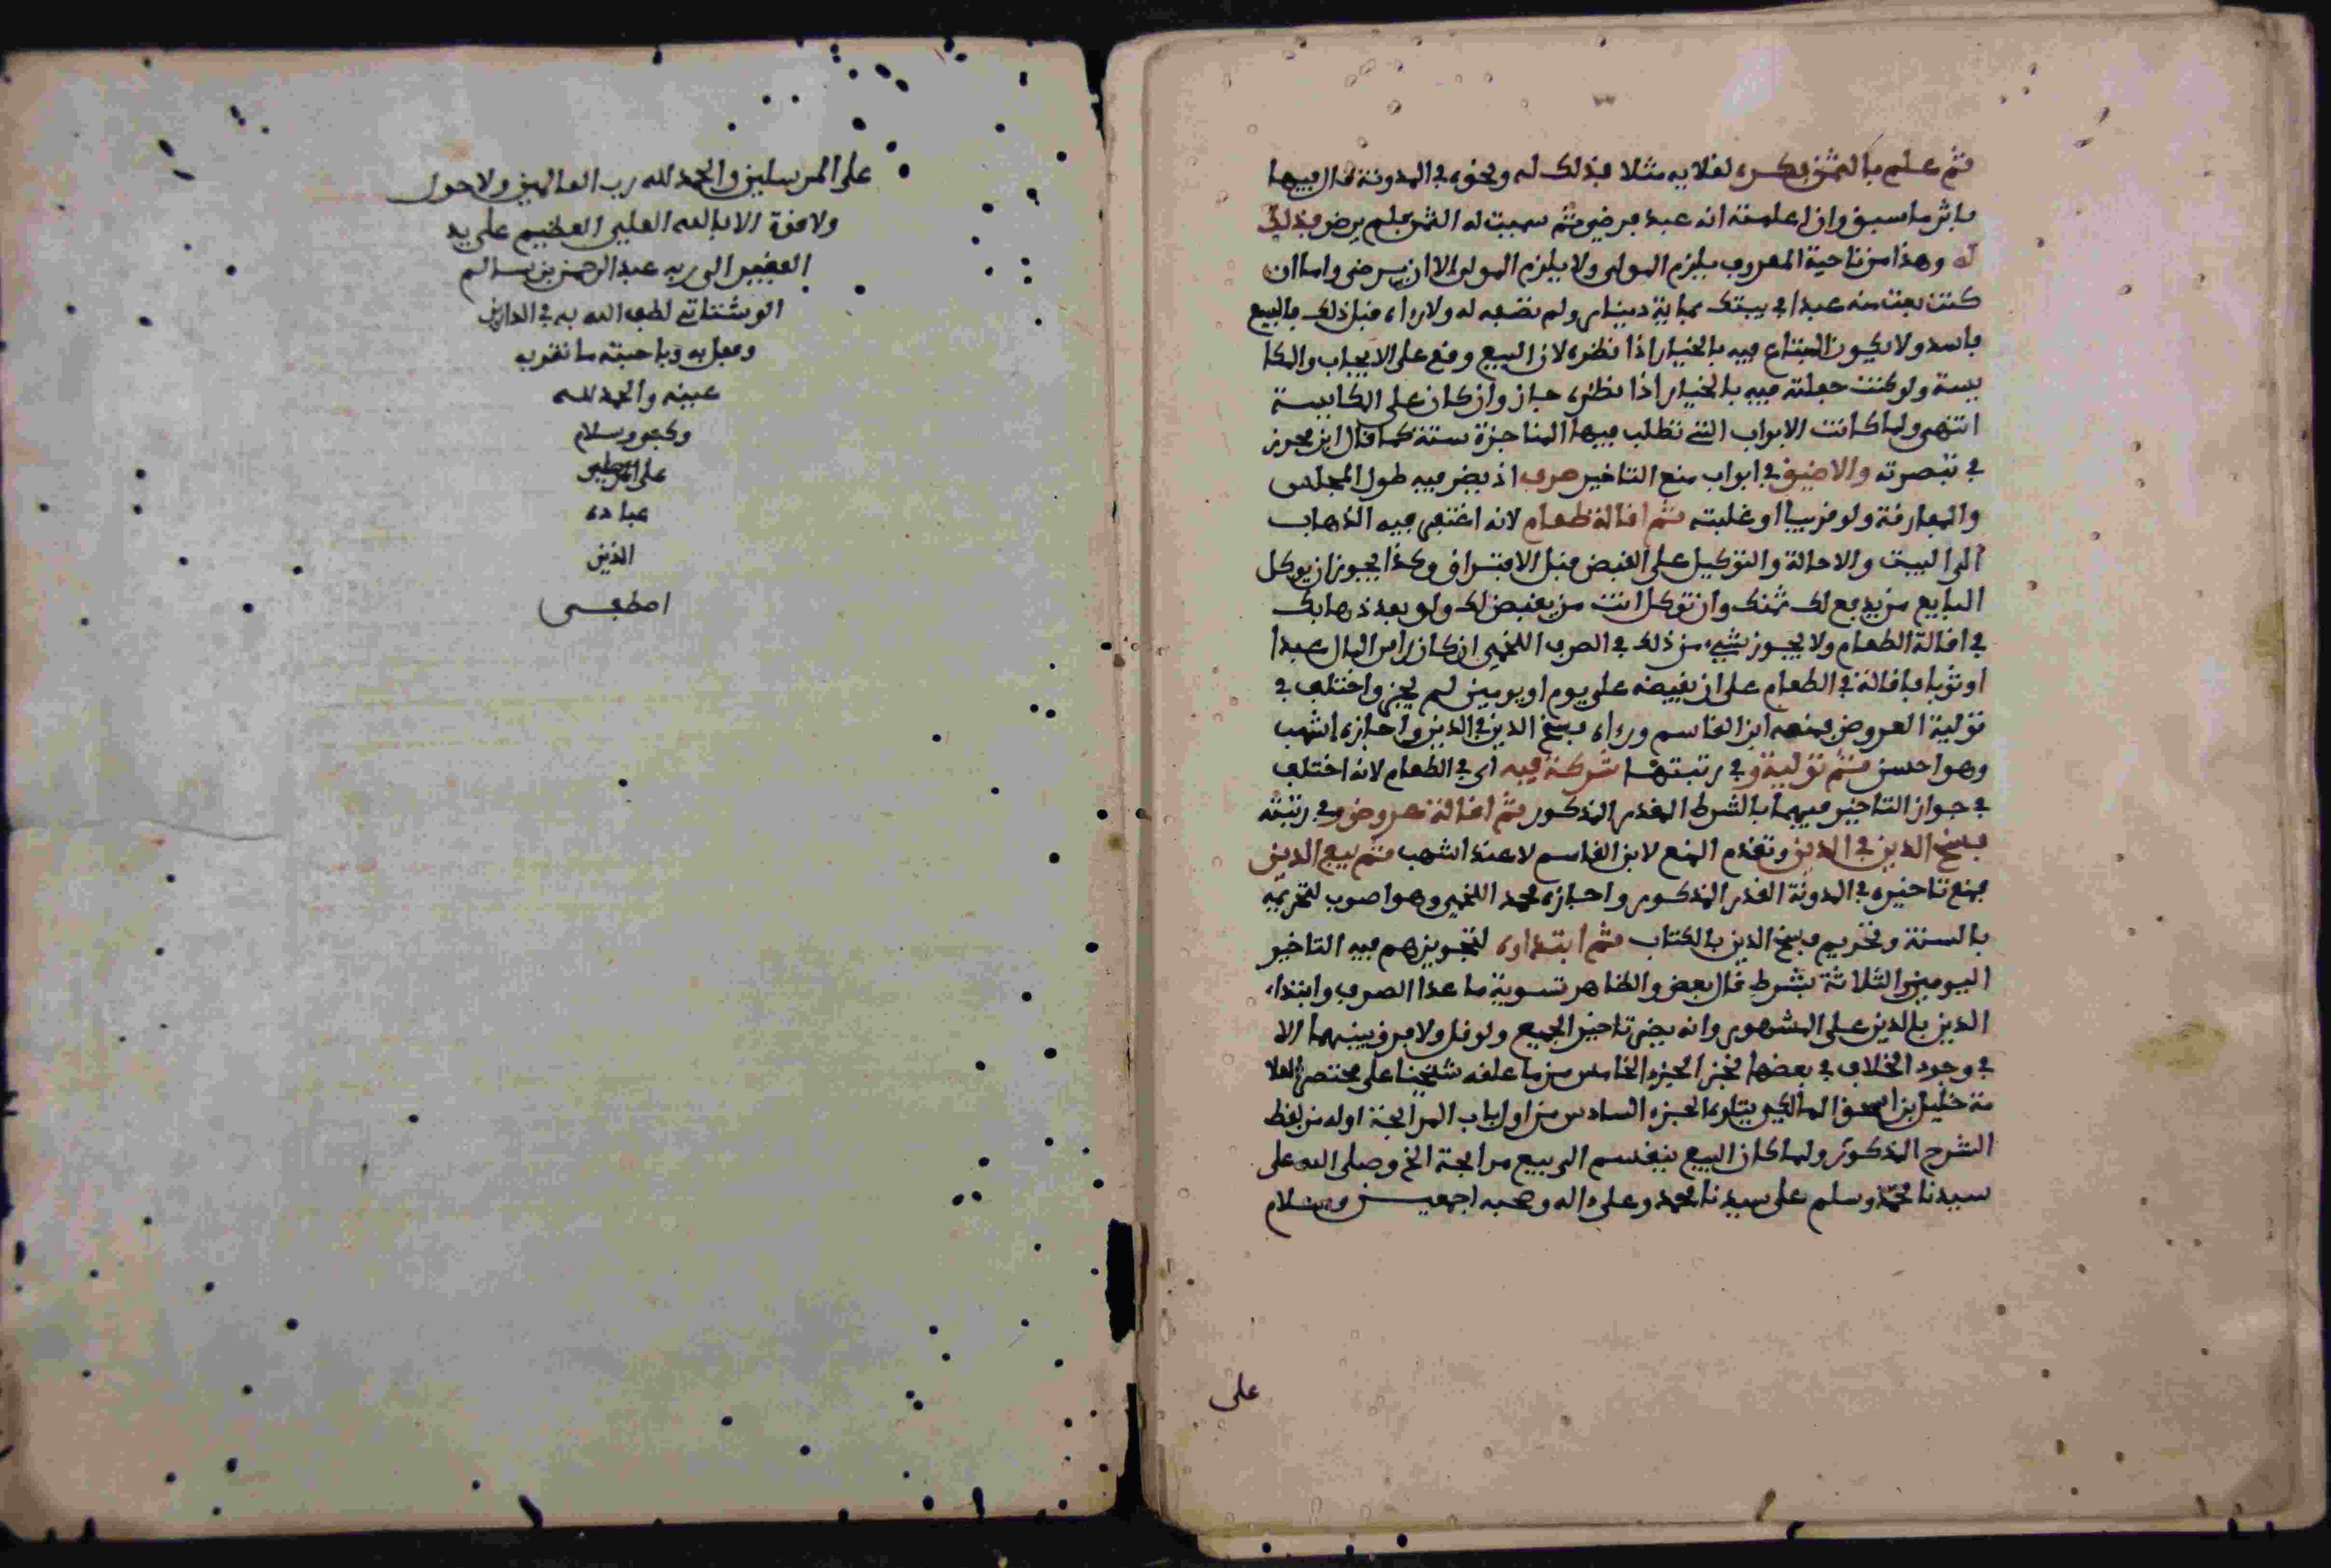 ثم علم بالثمن فكره لغلايه مثلا فذلك له ونحوه في المدونة قال فيها
باثر ما سبق وان اعلمته انه عبد فرضي ثم سميت له الثمن فلم يرض فذلك
له وهذا من ناحية المعروف يلزم المولى ولا يلزم المولى الا ان يرضى واما ان
كنت بعت منه عبدا في بيتك بماية دينار ولم تصفه له ولا رءاه قبل ذلك فالبيع
فاسد ولا يكون المبتاع فيه بالخيار اذا نظره لان البيع وقع على الايجاب والمكا
يسة ولو كنت جعلته فيه بالخيار اذا نظره جاز وان كان على المكايسة
انتهى ولما كانت الابواب التي تطلب فيها المناجزة ستة كما قال ابن محرز
في تبصرته والاضيق في ابواب منع التاخير صرف اذ يضر فيه طول المجلس
والمفارقة ولو قريبا او غلبته ثم اقالة طعام لانه اغتفر فيه الذهاب
الى البيت والاحالة والتوكيل على القبض قبل الافتراق وكذا يجوز ان يوكل
البايع من يدفع لك ثمنك وان توكل انت من يقبض لك ولو بعد ذهابك
في اقالة الطعام ولا يجوز شيء من ذلك في الصرف اللخمي ان كان راس المال عبدا
او ثوبا فاقالة في الطعام على ان يقبضه على يوم او يومين لم يجز واختلف في
تولية العروض فمنعه ابن القاسم ورءاه فسخ الدين في الدين واجازه اشهب
وهو احسن ثم تولية وفي رتبتها شركة فيه اي في الطعام لانه اختلف
في جواز التاخير فيهما بالشرط القدر المذكور ثم اقالة عروض وفي رتبته
فسخ الدين في الدين وتقدم المنع لابن القاسم لا عند اشهب ثم بيع الدين
فمنع تاخيره في المدونة القدر المذكور واجازه محمد اللخمي وهو اصوب لتحريمه
بالسنة وتحريم فسخ الدين بالكتاب ثم ابتداوه لتجويزهم فيه التاخير
اليومين والثلاثة بشرط قال بعض والظاهر تسوية ما عدا الصرف وابتداء
الدين بالدين على المشهور وانه يضر تاخير الجميع ولو قل ولا فرق بينهما الا
في وجود الخلاف في بعضها نجز الجزء الخامس من ما علقه شيخنا على مختصر العلا
مة خليل بن اسحق المالكي يتلوه الجزء السادس من اول باب المرابحة اوله من لفظ
الشرح المذكور ولما كان البيع ينقسم الى بيع مرابحة الخ وصلى الله على
سيدنا محمد وسلم على سيدنا محمد وعلى ءاله وصحبه اجمعين وسلام
على
على المرسلين والحمد لله رب العالمين ولا حول
ولا قوة الا بالله العلي العظيم على يد
الفقير الى ربه عبد الرحمن بن سالم
الوشتاتي لطف الله به في الدارين
وفعل به وباحبته ما تقر به
عينه والحمد لله
وكفى وسلام
على
عباده
الذين
اصطفى